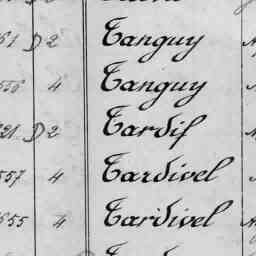 61 D 2 Tanguy
556 4 Tanguy
21 D 2 Tardif
557 4 Tardivel
655 4 Taridivel